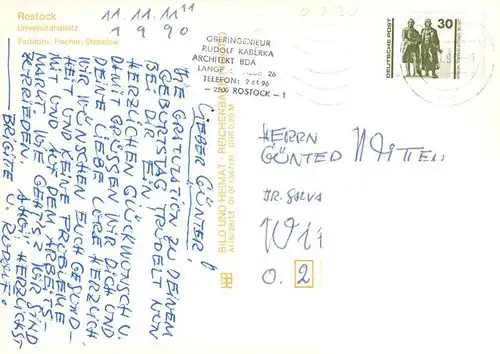 Rostock
Universitätsplatz
Farbfoto: Fischer, Stäbelow
11.11.11¹¹
1990
OBERINGENIEUR
RUDOLF KABERKA
ARCHITEKT BDA
LANGE 26
TELEFON:
– 2500 ROSTOCK – 1
DEUTSCHE POST
30
LIEBER GÜNTER!
DIE GRATULATION ZU DEINEM
GEBURTSTAG TRUDELT NUN
BEI DIR EIN.
HERZLICHEN GLÜCKWUNSCH U.
DAMIT GRÜSSEN WIR DICH UND
DEINE LIEBE LORE HERZLICH
WIR WÜNSCHEN EUCH GESUND-
HEIT UND KEINE PROBLEME
MIT UND AUF DEM ARBEITS-
MARKT. WIE GEHT'S? WIR SIND
ZUFRIEDEN. AHOI! HERZLICHST
BRIGITTE U. RUDOLF.
BILD UND HEIMAT · REICHENBACH
HERRN
GÜNTER
DR.
O. 2